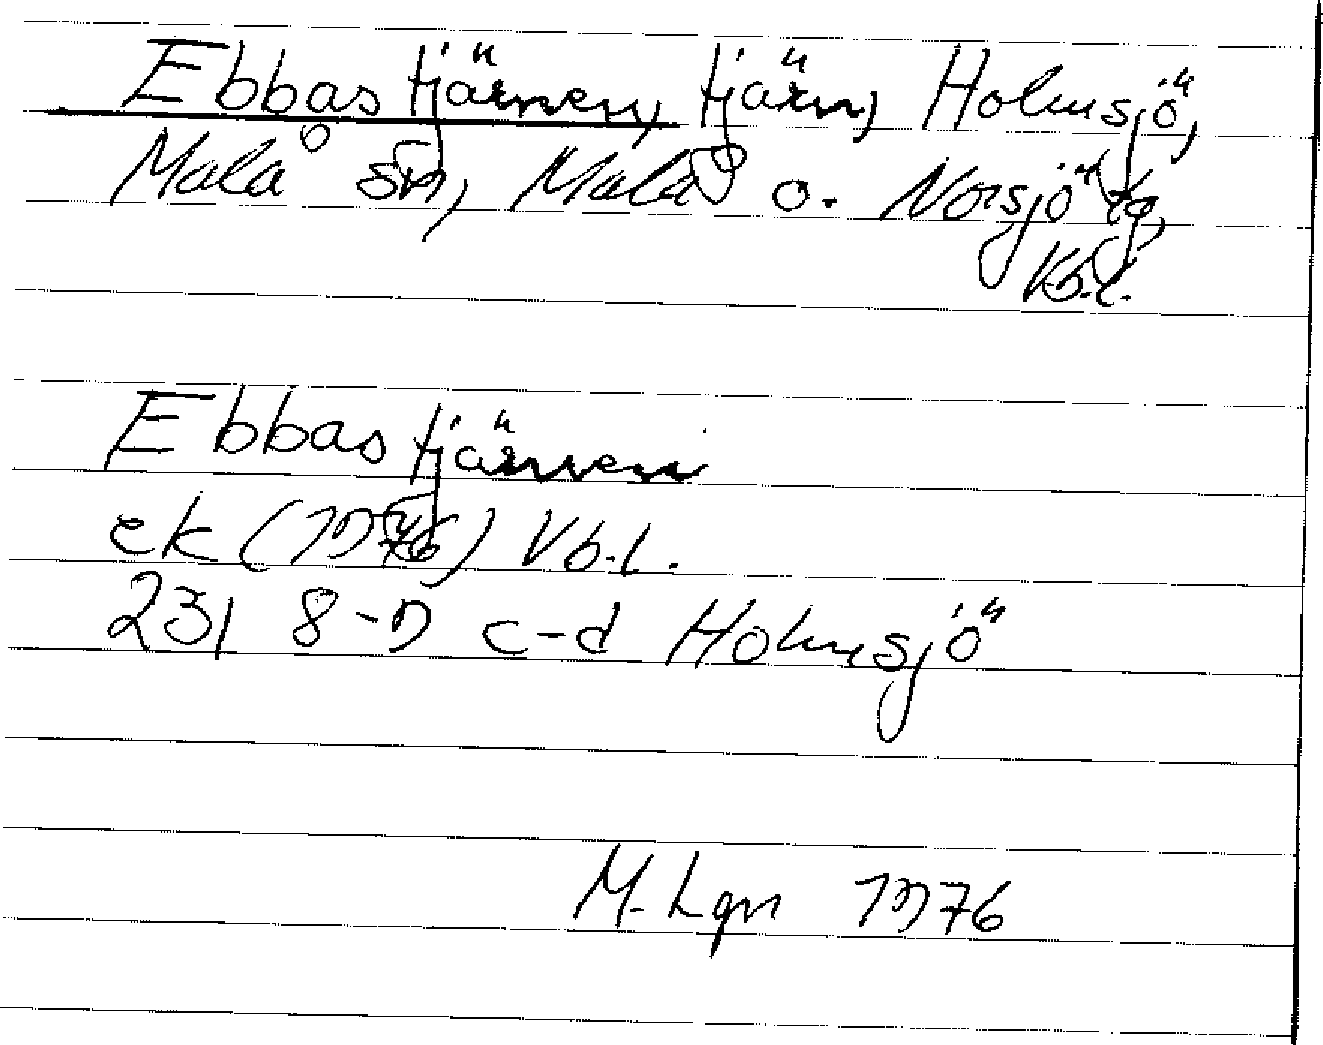 Ebbastjärnen, tjärn, Holmsjö,
Malå sn, Malå o. Norsjö tg,
Vb.l.
Ebbastjärnen
ek (1976) Vb.l.
23I 8-9 c-d Holmsjö
M. Lgn 1976